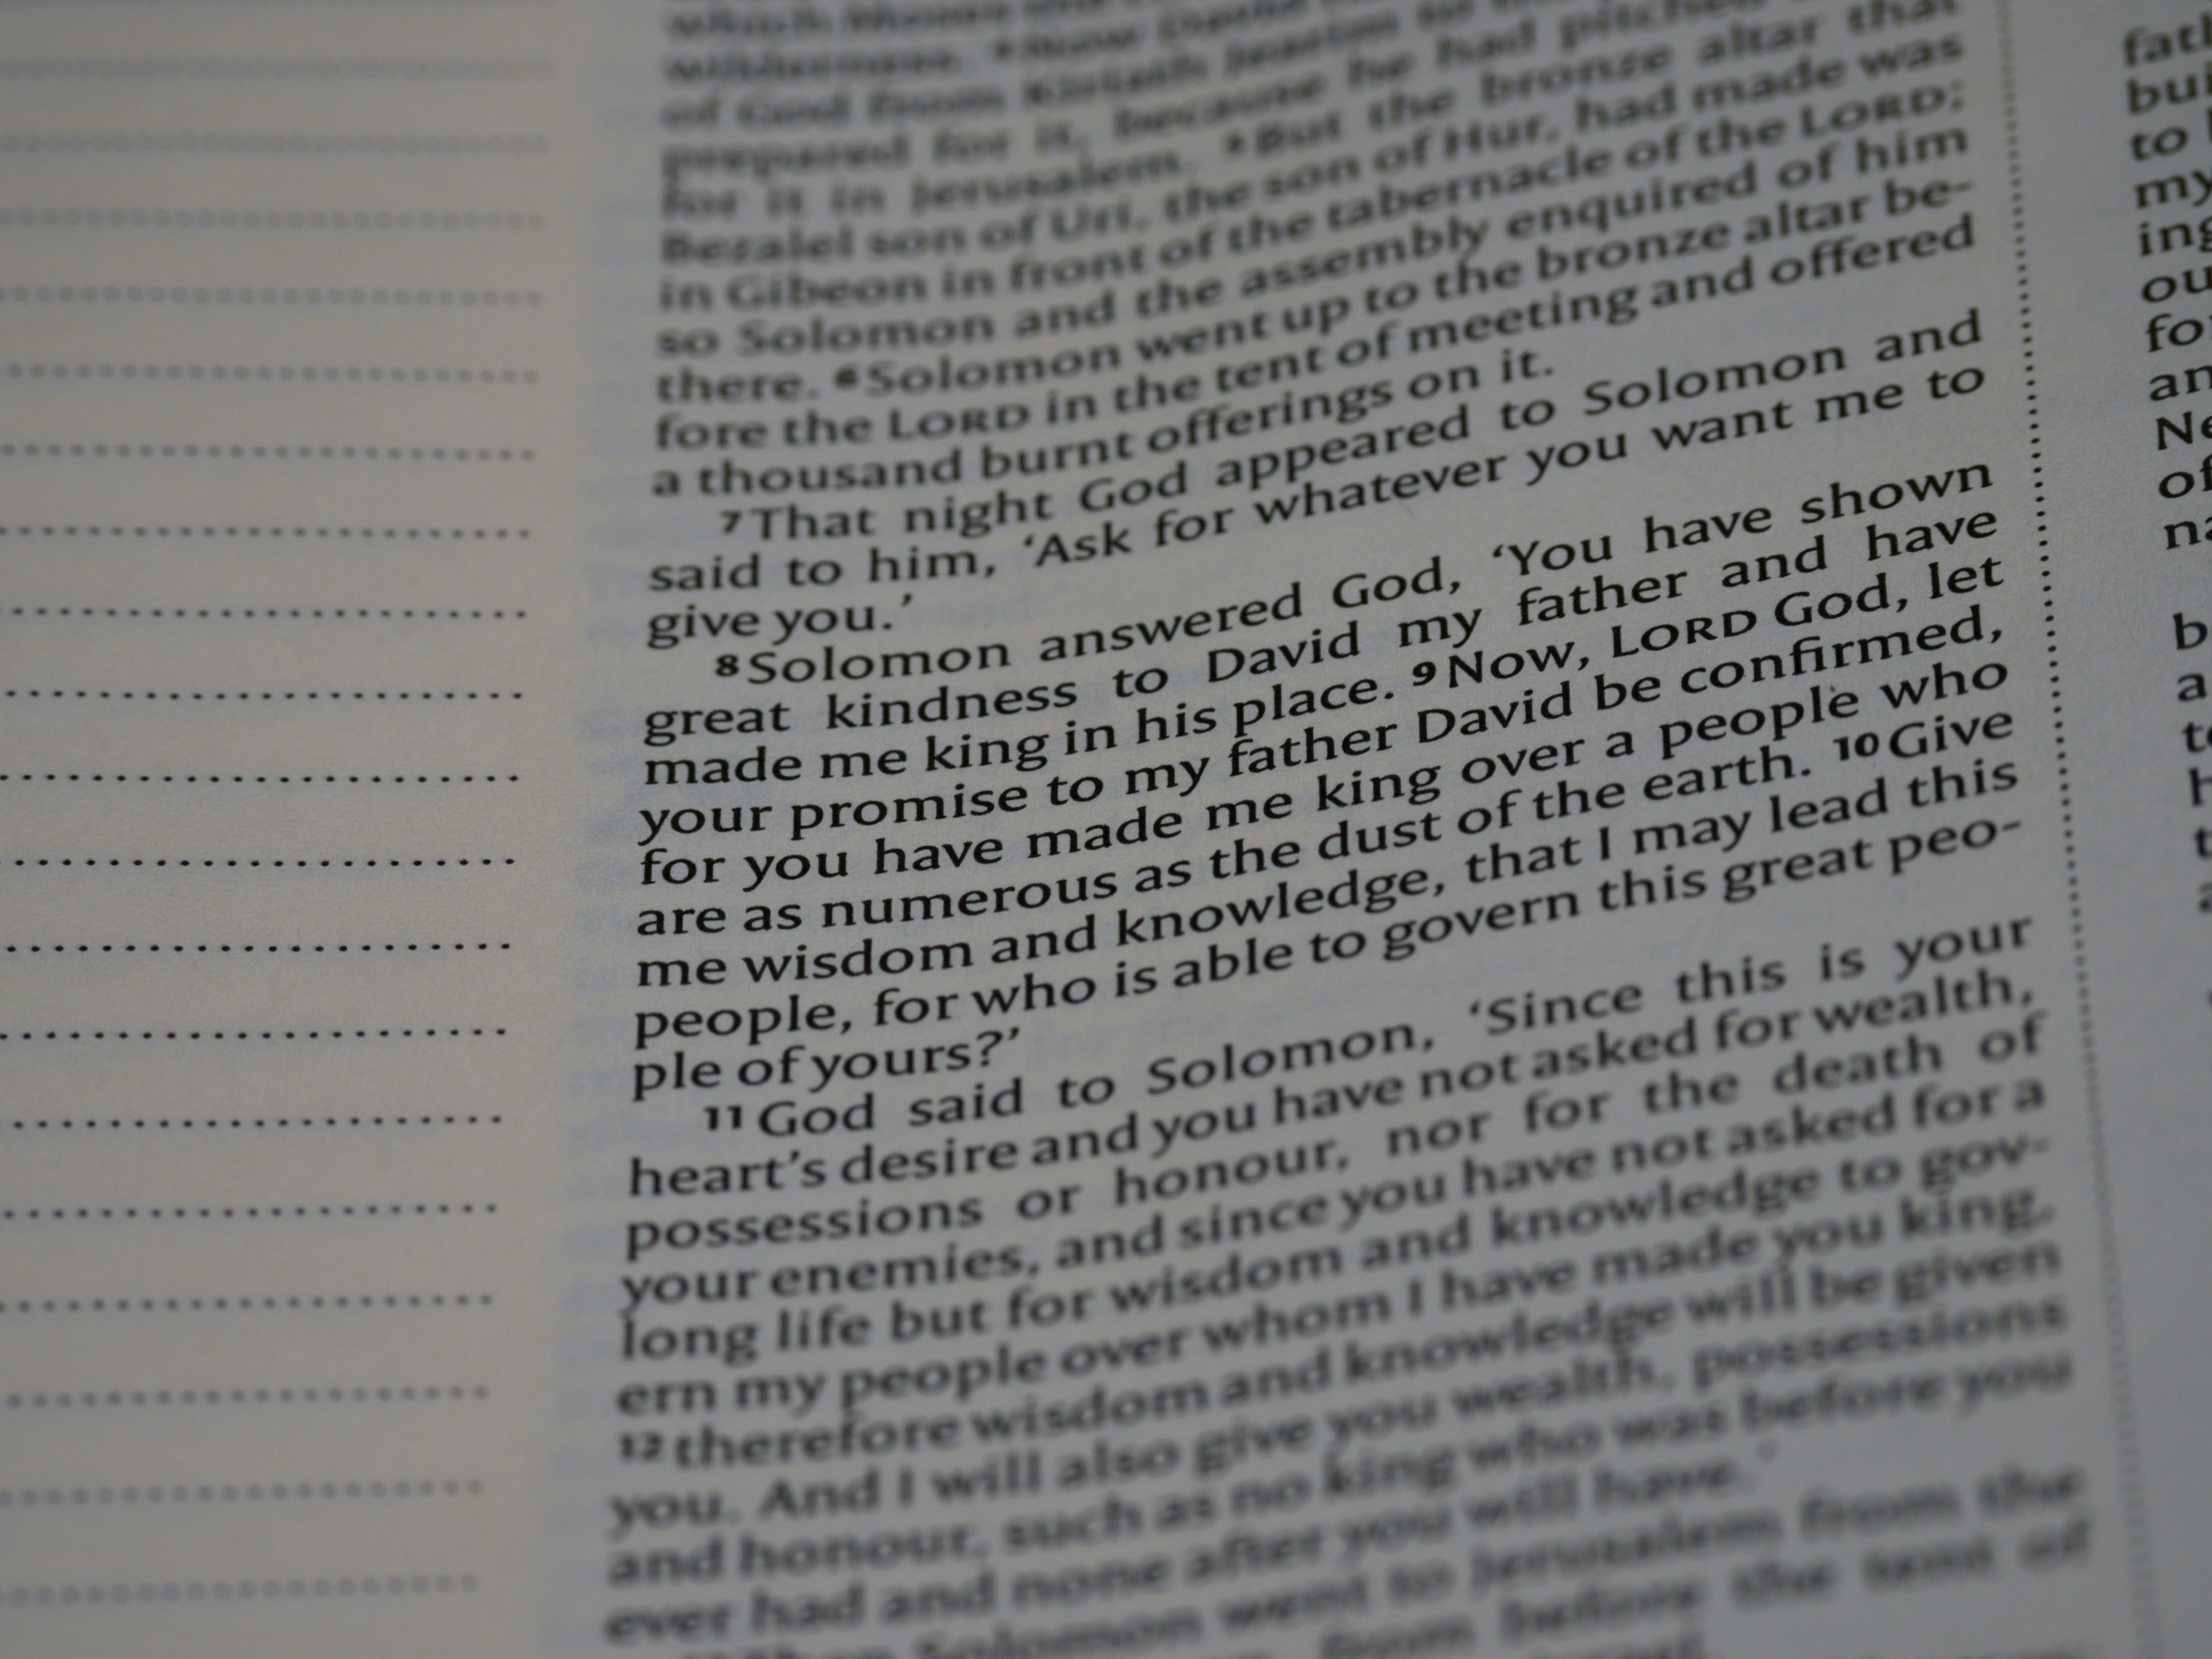 wilderness.
of God from Kiriath Jearim to
prepared for it, because he had pitched
for it in Jerusalem. 5But the bronze altar that
Bezalel son of Uri, the son of Hur, had made was
in Gibeon in front of the tabernacle of the LORD;
so Solomon and the assembly enquired of him
there. 6Solomon went up to the bronze altar be-
fore the LORD in the tent of meeting and offered
a thousand burnt offerings on it.
7That night God appeared to Solomon and
said to him, ‘Ask for whatever you want me to
give you.’
8Solomon answered God, ‘You have shown
great kindness to David my father and have
made me king in his place. 9Now, LORD God, let
your promise to my father David be confirmed,
for you have made me king over a people who
are as numerous as the dust of the earth. 10Give
me wisdom and knowledge, that I may lead this
people, for who is able to govern this great peo-
ple of yours?’
11God said to Solomon, ‘Since this is your
heart’s desire and you have not asked for wealth,
possessions or honour, nor for the death of
your enemies, and since you have not asked for a
long life but for wisdom and knowledge to gov-
ern my people over whom I have made you king,
12therefore wisdom and knowledge will be given
you. And I will also give you wealth, possessions
and honour, such as no king who was before you
ever had and none after you will have.’
Solomon went to Jerusalem from the
from before the tent of
to
my
ing
Ne
of